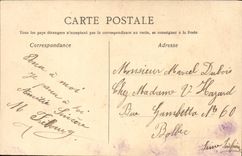 CARTE POSTALE
Tous les pays étrangers n'acceptent pas la correspondance au recto, se renseigner à la Poste
Correspondance
Adresse
à moi
Amitié Sincère
M.
Monsieur Marcel Dubois
Chez Madame Vve Hazard
Rue Gambetta No 60
Bolbec
Seine